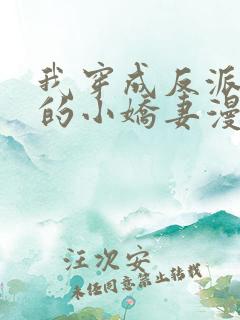 我穿成反派
的小娇妻漫
汪次安
未经同意禁止转载